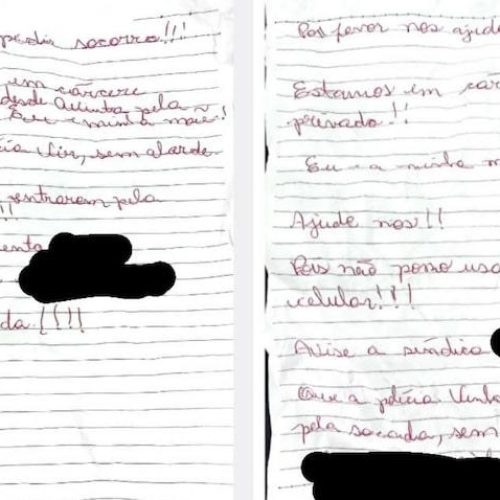 pedir socorro!!!
em cárcere
desde Quinta pela
Eu e minha mãe!
vir, sem alarde
entraram pela
!!
Por favor nos ajude
Estamos em cár
privado!!
Eu e a minha m
Ajude nos!!
Pois não posso usa
celular!!!
Avise a síndica
Que a polícia Venha
pela sacada, sem